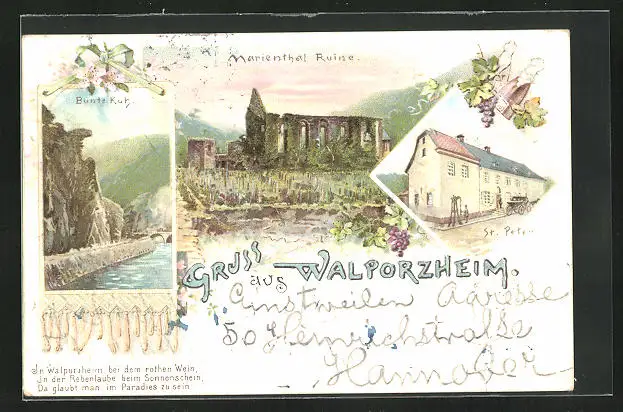 Marienthal Ruine.
Bunte Kuh.
St. Peter
Gruss aus Walporzheim.
Einstweilen Adresse
50 Heinrichstraße
Hannover
In Walporzheim bei dem rothen Wein,
In der Rebenlaube beim Sonnenschein,
Da glaubt man im Paradies zu sein.